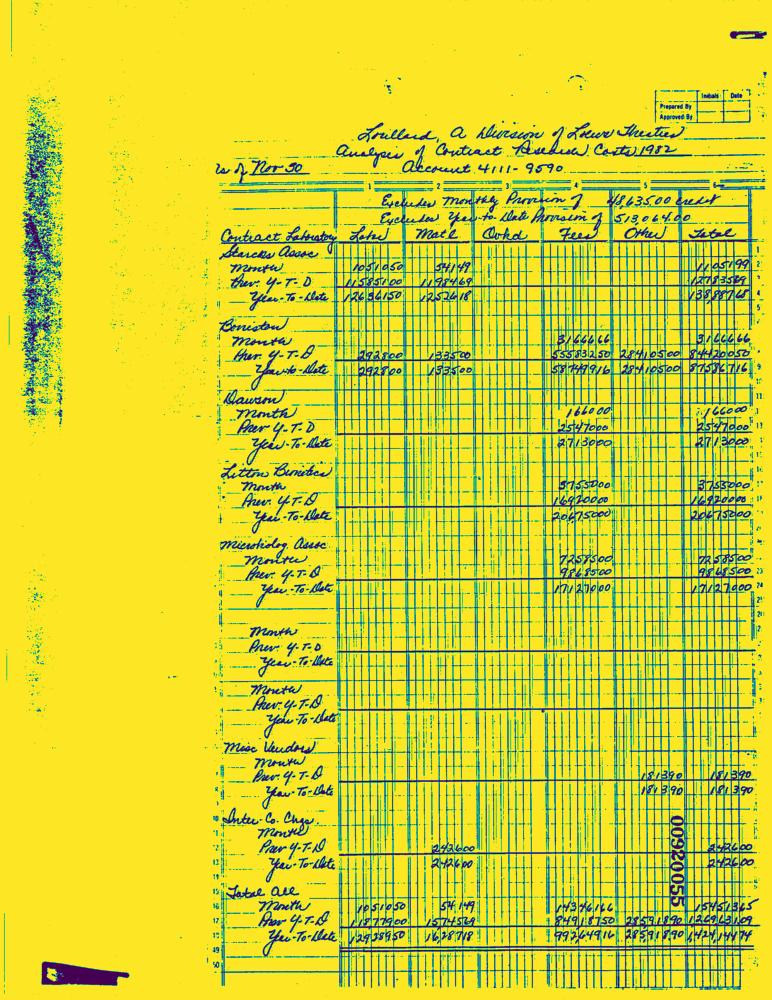 Initials Date
Prepared By
Approved By
Lorillard, A Division of Loew's Theatres
Analysis of Contract Research Costs 1982
as of Nov 30 Account 4111-9590
1 2 3 4 5 6
Excludes Monthly Provision of 48,635.00 credit
Excludes Year-to-Date Provision of 513,064.00
Contract Laboratory Labor Mat'l Ovhd Fees Other Total
Assoc
Month 1051050 54149 1105199
Prev. Y-T-D 11585100 1198469 12783569
Year-To-Date 12636150 1252618 13888768
Borriston
Month 3166666 3166666
Prev. Y-T-D 292800 133500 55583250 28410500 84420050
Year-to-Date 292800 133500 58749916 28410500 87586716
Dawson
Month 166000 166000
Prev Y-T-D 2547000 2547000
Year-To-Date 2713000 2713000
Litton Bionetics
Month 3755000 3755000
Prev. Y-T-D 16920000 16920000
Year-To-Date 20675000 20675000
Microbiolog. Assoc
Month 7258500 7258500
Prev. Y-T-D 9868500 9868500
Year-To-Date 17127000 17127000
Month
Prev. Y-T-D
Year-To-Date
Month
Prev. Y-T-D
Year-To-Date
Misc Vendors
Month
Prev. Y-T-D 181390 181390
Year-To-Date 181390 181390
Inter-Co. Chgs
Month
Prev Y-T-D 242600 242600
Year-To-Date 242600 242600
Total All
Month 1051050 54149 14346166 15451365
Prev Y-T-D 11877900 1574569 84918750 28591890 126963109
Year-To-Date 12928950 1628718 99264916 28591890 142414474
00920055